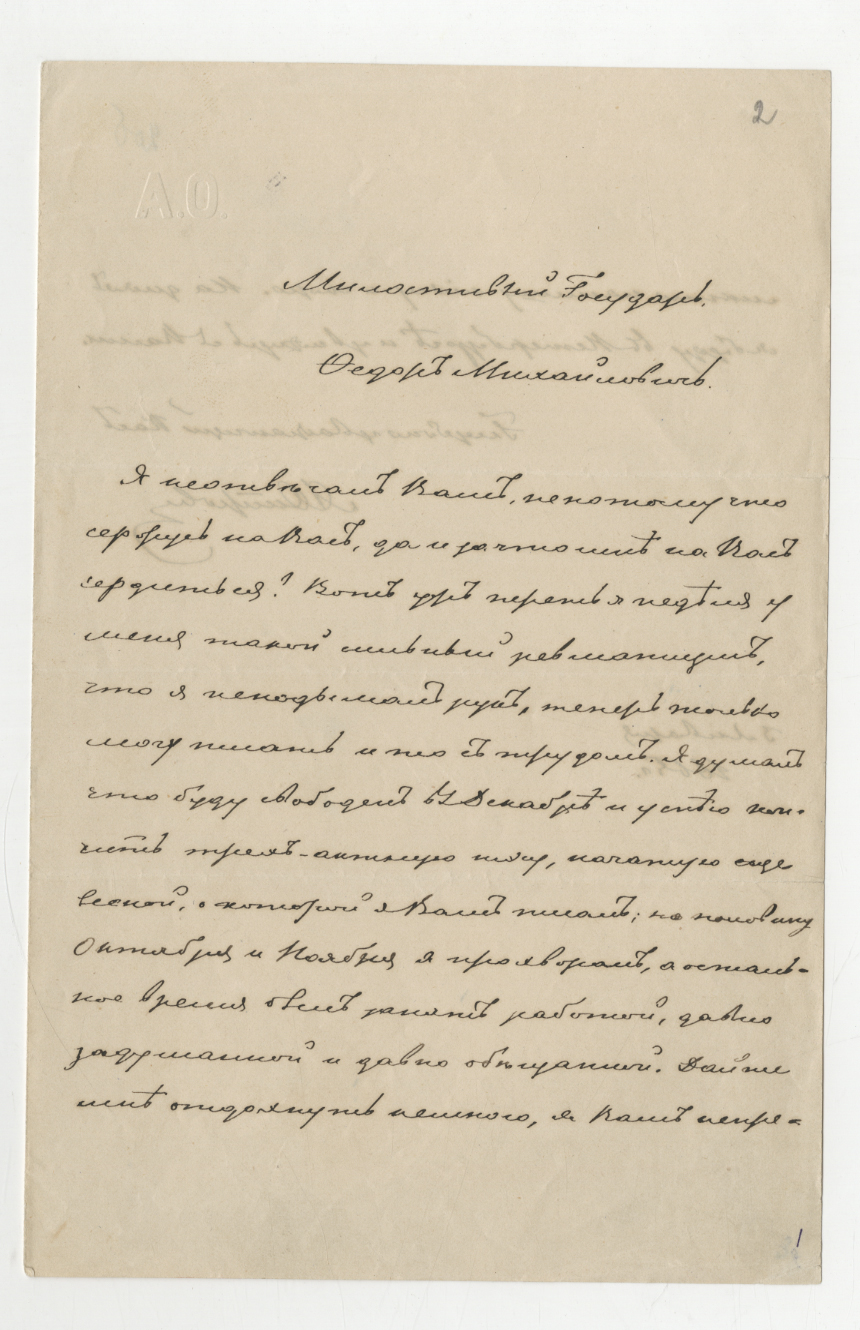 2
О.А.
Милостивый Государь.
Ѳедоръ Михайловичъ.
Я неотвѣчалъ Вамъ, не потому что
сержусь на Васъ, да и за что мнѣ на Васъ
сердиться? Вотъ ужъ третья недѣля у
меня такой сильный ревматизмъ,
что я неподымалъ рукъ, теперь только
могу писать и то съ трудомъ. Я думалъ
что буду свободенъ въ Декабрѣ и успѣю кон-
чить трехъ-актную пиэсу, начатую еще
весной, о которой я Вамъ писалъ; но половину
Октября и Ноября я прохворалъ, а осталь-
ное время былъ занятъ работой, давно
задуманной и давно обѣщанной. Дайте
мнѣ отдохнуть немного, я Вамъ непре-
1